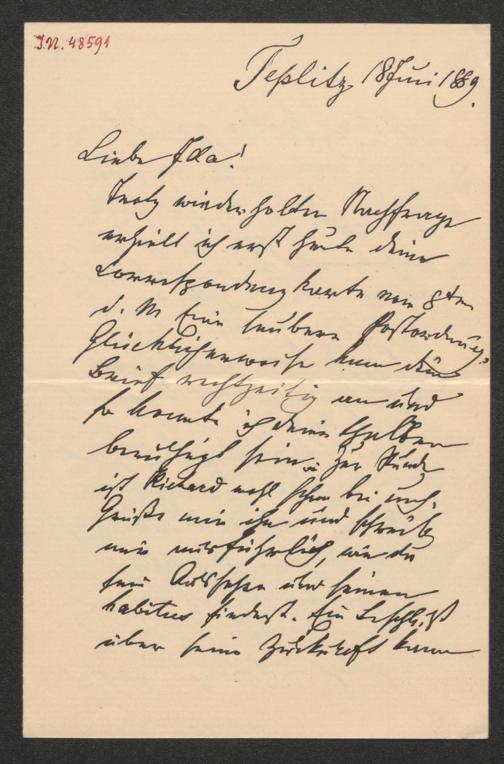 J.N. 48591
Teplitz 18 Juni 1889.
Liebe Ida!
Trotz wiederholter Nachfrage
erhielt ich erst heute deine
Correspondenzkarte vom 8ten
d. M. Eine saubere Postordnung.
Glücklicherweise kam dein
Brief rechtzeitig an und
so konnte ich deinethalben
beruhigt sein. Zur Stunde
ist Richard wohl schon bei euch.
Grüße mir ihn und schreib
mir ausführlich, wie du
sein Aussehen und seinen
habitus findest. Ein Beschluß
über seine Zukunft kann